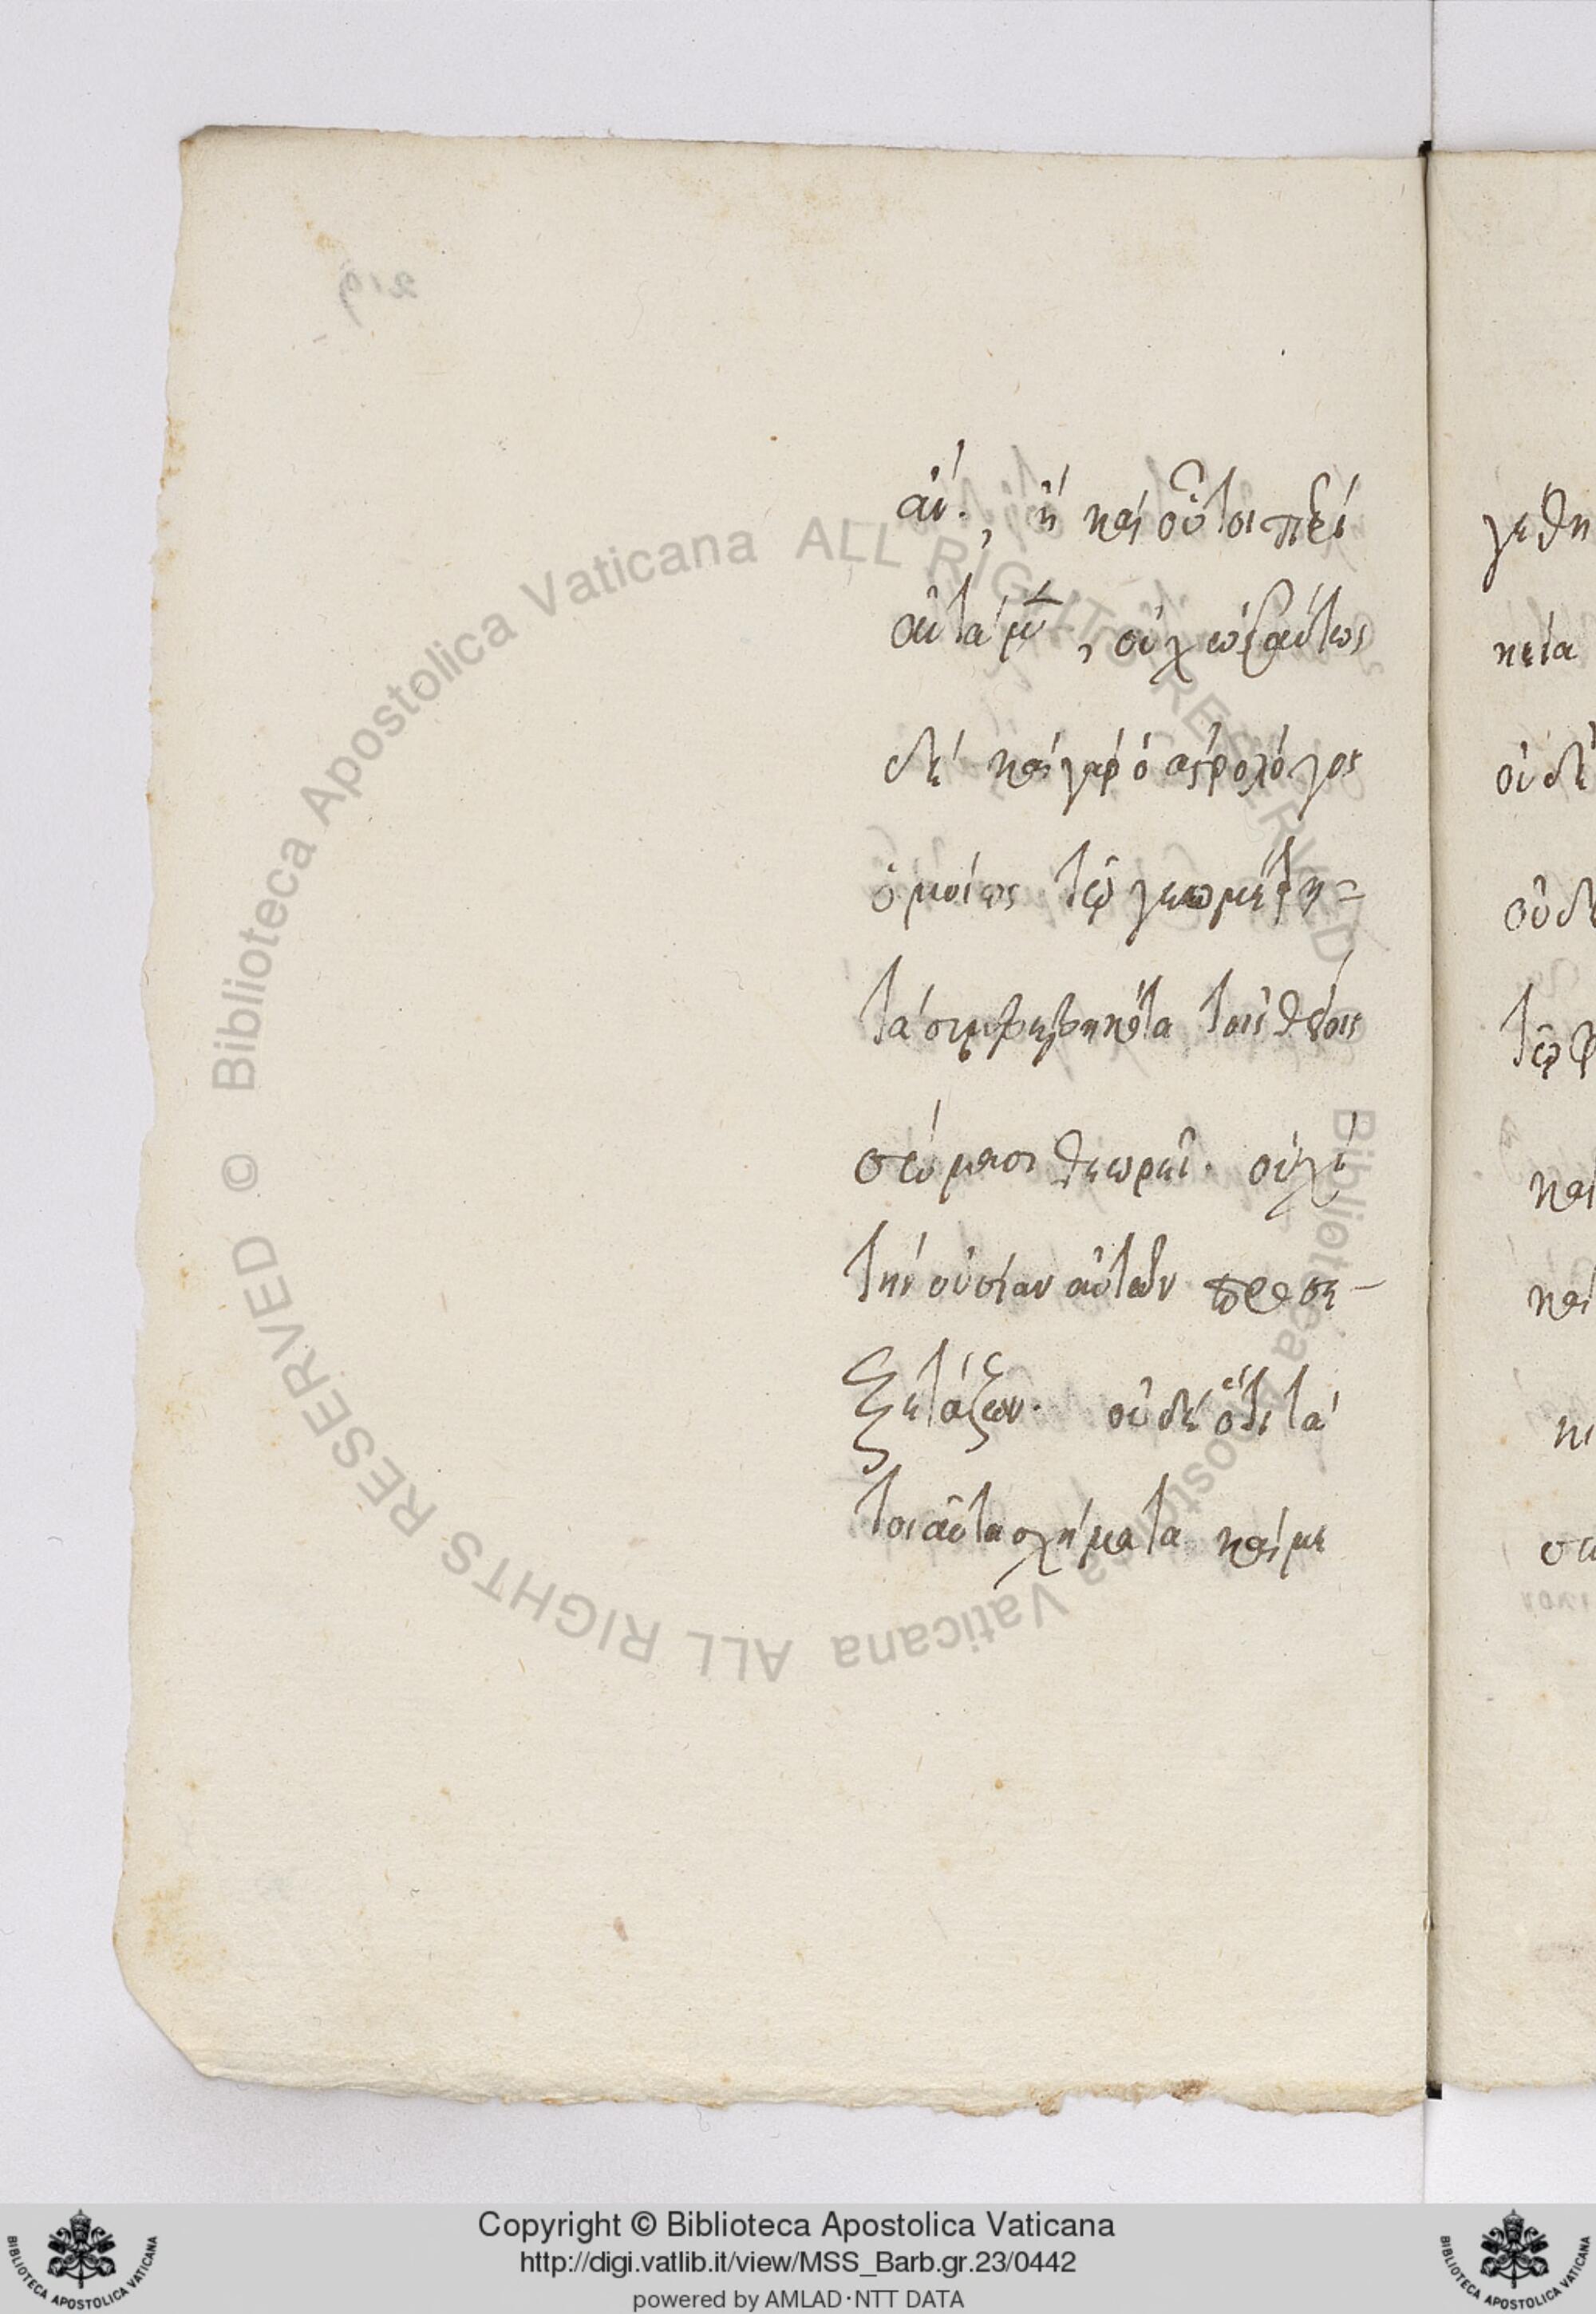 219
ἀν., ἢ καὶ οὗτοι περὶ
αὐτὰ μὲν, οὐχ ὡσαύτως
δέ· καὶ γὰρ ὁ ἀστρολόγος
ὁμοίως τῷ γεωμέτρῃ
τὰ συμβεβηκότα τοῖς θείοις
σώμασι θεωρεῖ· οὐχὶ
τὴν οὐσίαν αὐτῶν προσε-
ξετάζων· οὐδὲ ὅτι τὰ
τοιαῦτα σχήματα καὶ με
γεθη
κεῖα
οὐδὲ
οὐδὲ
τῷ φ
καὶ
καὶ
Biblioteca Apostolica Vaticana ALL RIGHTS RESERVED ©
Biblioteca Apostolica Vaticana ALL RIGHTS RESERVED ©
BIBLIOTECA APOSTOLICA VATICANA
Copyright © Biblioteca Apostolica Vaticana
http://digi.vatlib.it/view/MSS_Barb.gr.23/0442
powered by AMLAD·NTT DATA
BIBLIOTECA APOSTOLICA VATICANA